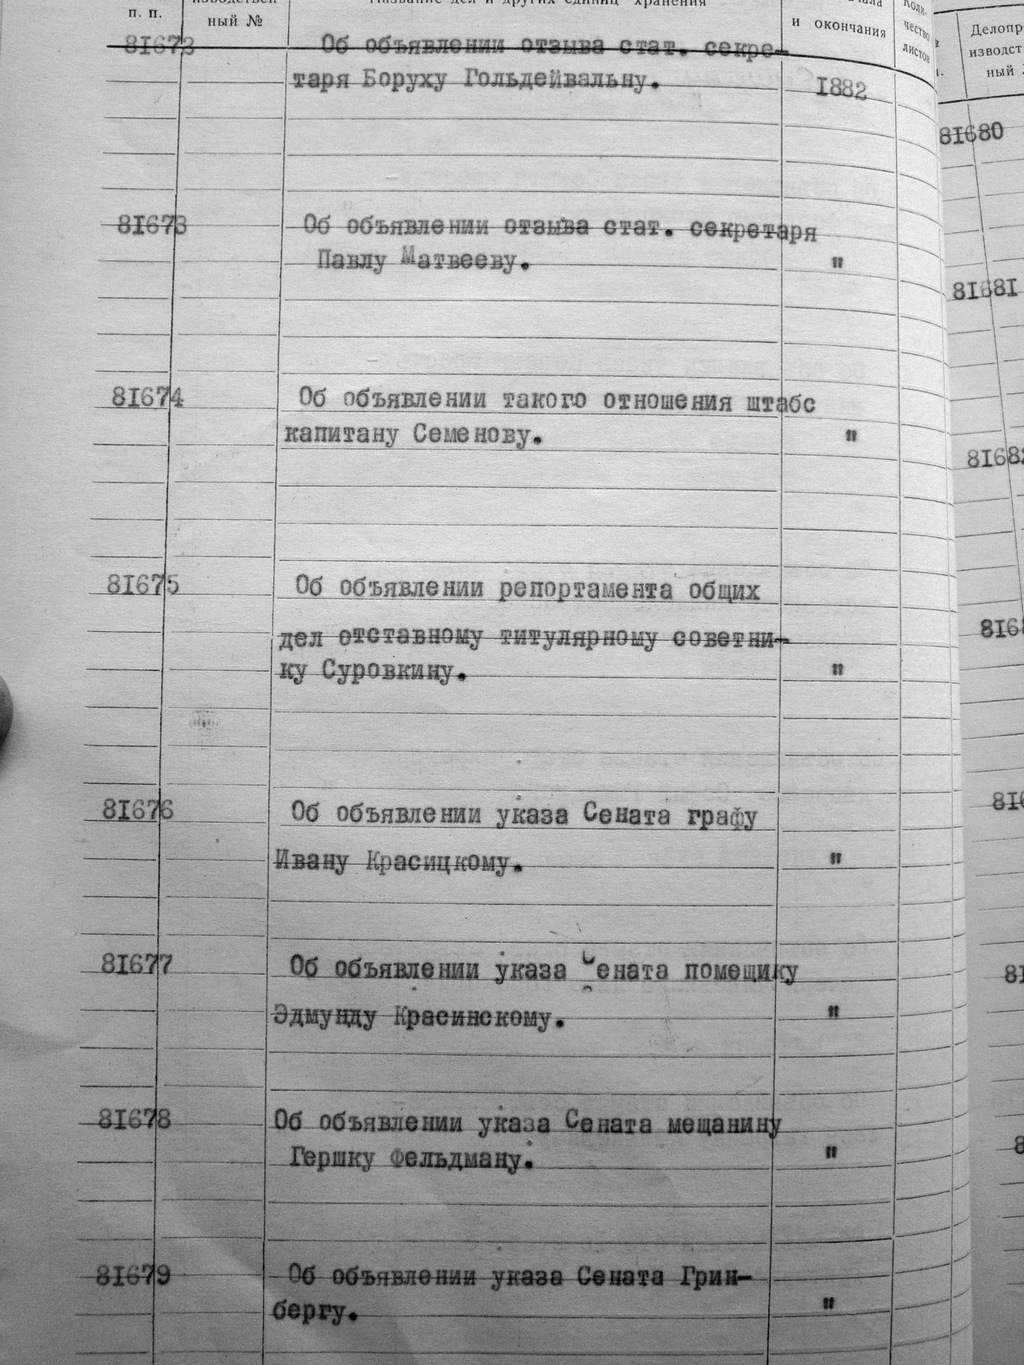 п. п.
изводствен
ный №
Название дел и других единиц хранения
и окончания
Коли-
чество
листов
81672 Об объявлении отзыва стат. секре-
таря Боруху Гольдейвальну. 1882
81673 Об объявлении отзыва стат. секретаря
Павлу Матвееву. "
81674 Об объявлении такого отношения штабс
капитану Семенову. "
81675 Об объявлении репортамента общих
дел отставному титулярному советни-
ку Суровкину. "
81676 Об объявлении указа Сената графу
Ивану Красицкому. "
81677 Об объявлении указа Сената помещику
Эдмунду Красинскому. "
81678 Об объявлении указа Сената мещанину
Гершку Фельдману. "
81679 Об объявлении указа Сената Грин-
бергу. "
Делопр
изводст
ный
81680
81681
81682